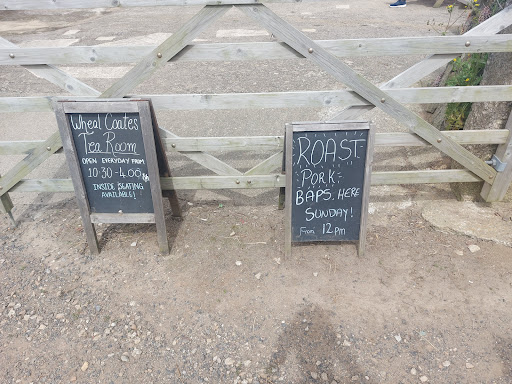 Wheal Coates
Tea Room
OPEN EVERYDAY FROM
10:30-4.00
INSIDE SEATING
AVAILABLE!
ROAST
PORK
BAPS. HERE
SUNDAY!
From 12pm